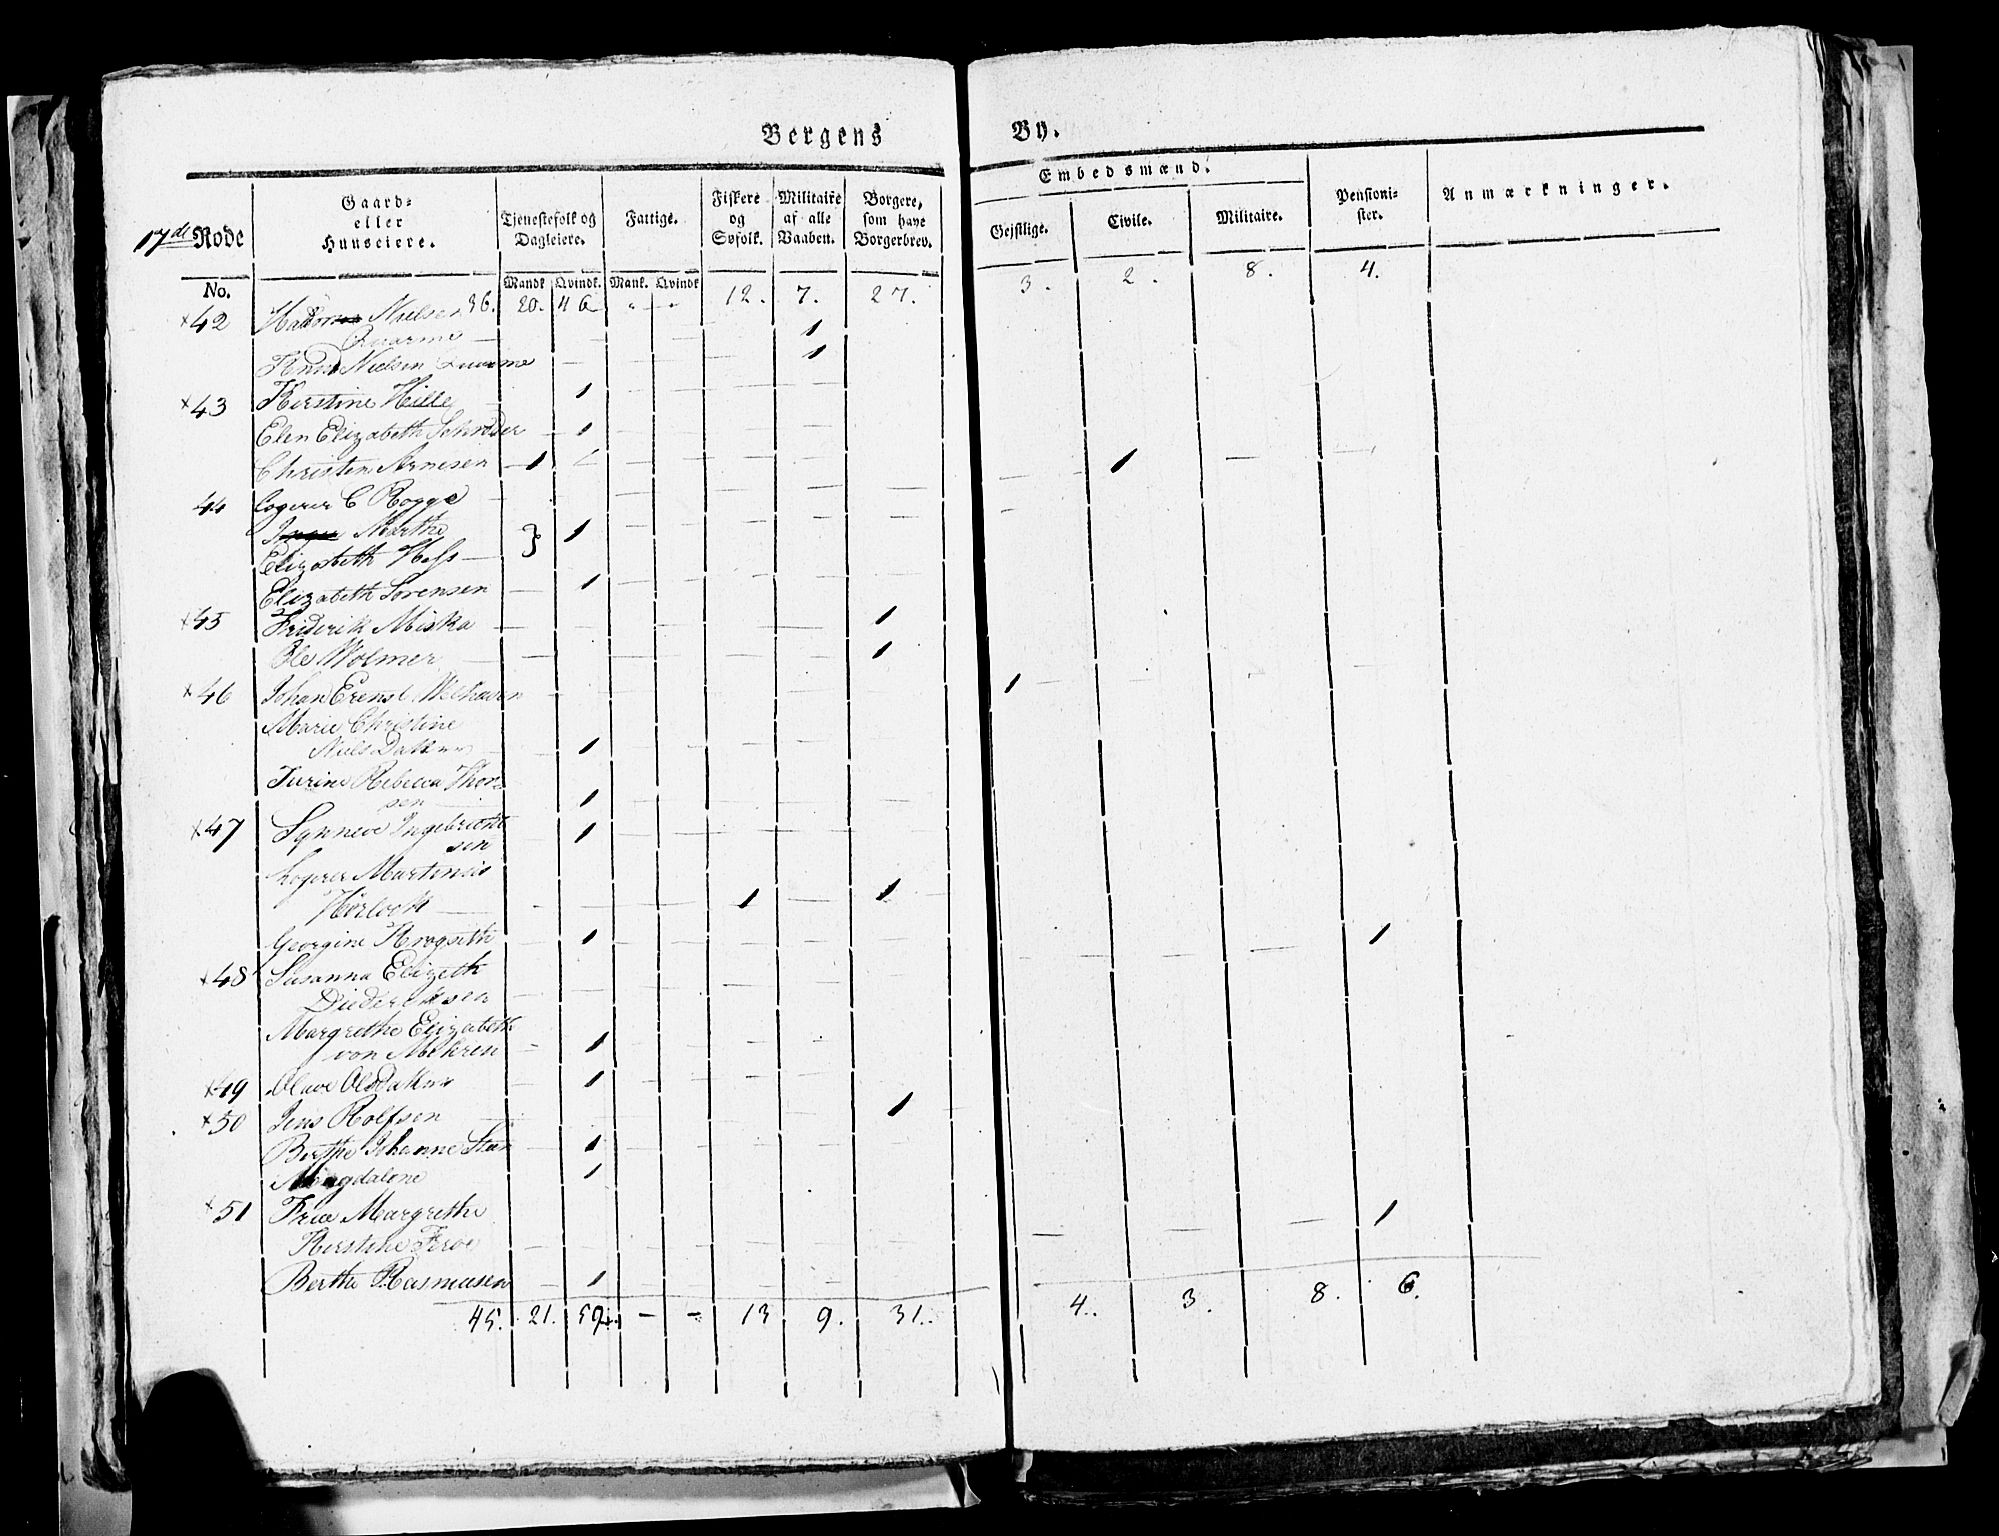 Bergens By.
17de Rode
No.
Gaard- eller Huuseiere.
Tjenestefolk og Dagleiere.
Fattige.
Fiskere og Søfolk.
Militaire af alle Vaaben.
Borgere, som have Borgerbrev.
Embedsmænd.
Gejstlige.
Civile.
Militaire.
Pensionister.
Anmærkninger.
Mandk Qvindk. Mank. Qvindk
36. 20. 46 " " 12. 7. 27. 3. 2. 8. 4.
×42 Nielsen
Qvarme — 1
Knud Nielsen Qvarme 1
×43 Kirstine Hille 1
Elen Elizabeth Schrøder 1
Christen Arnesen 1 1
44 Logerer C Rogge
Marthe
Elizabeth Hess } 1
Elizabeth Sørensen 1
×45 Friderik Miska 1
Ole Wolmer 1
×46 Johan Ernst Welhaven 1
Marie Christine
Nielsdatter 1
Jurine Rebecca Thor
sen 1
×47 Synneve Ingebricht
sen 1
Logerer Martinus
Hørlock 1 1
Georgine Krogseth 1
×48 Susanna Elizeth
Diederichsen 1
Margrethe Elizabeth
von Mehren 1
×49 Olave Olsdatter 1
×50 Jens Rolfsen 1
Birthe Johanne Steen 1
Magdalone 1
×51 Frue Margrethe
Kirstine Feroe 1
Berthe Rasmusen 1
45. 21. 59. — — 13 9. 31. 4. 3. 8. 6.